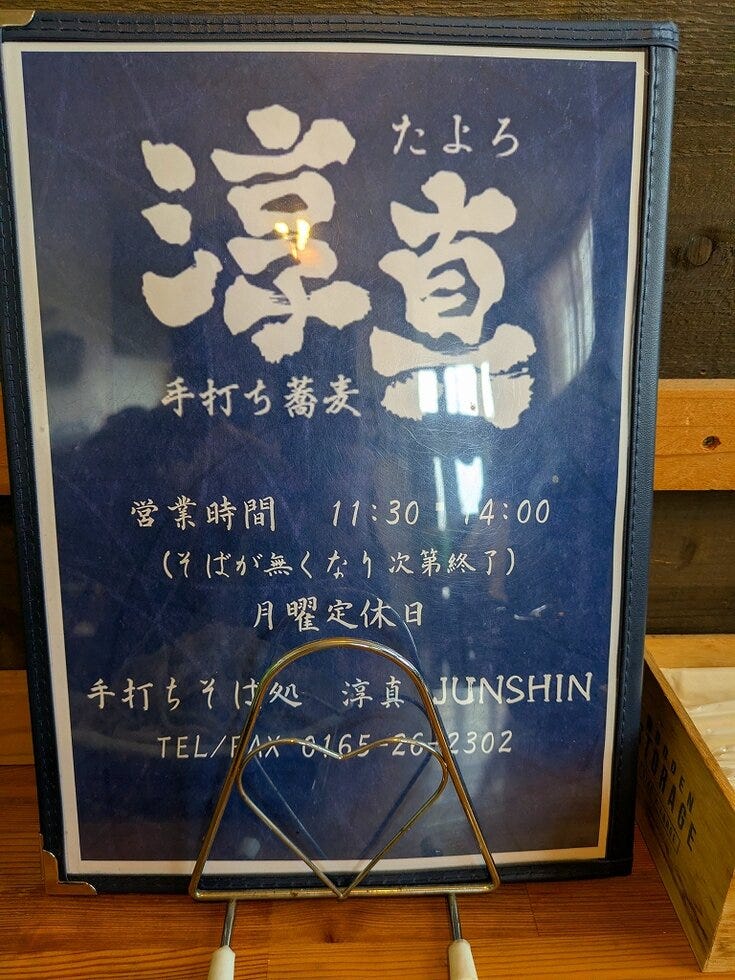 たよろ
淳真
手打ち蕎麦
営業時間 11:30 - 14:00
(そばが無くなり次第終了)
月曜定休日
手打ちそば処 淳真 JUNSHIN
TEL/FAX 0165-26-2302
STORAGE